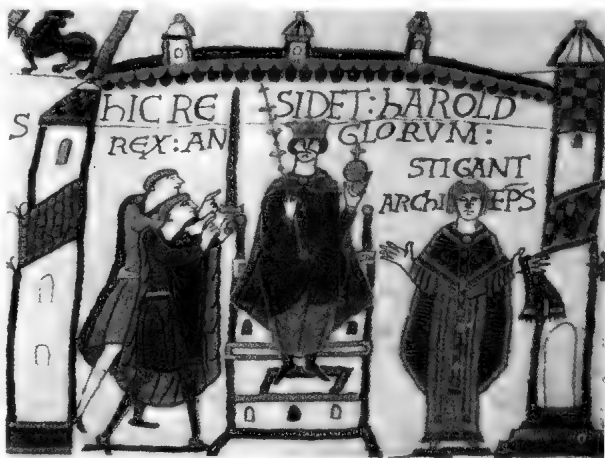 S hIC RE SIDET: hAROLD
REX: AN GLORVM:
STIGANT
ARChI EPS